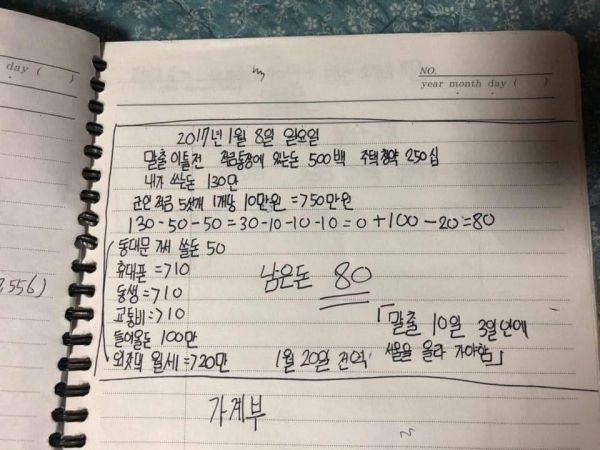 day (     )
,556)
NO.
year month day (     )
2017년 1월 8일 일요일
말출 이틀전 적금통장에 있는돈 500백 주택청약 250십
내가 쓰는돈 130만
군인 적금 5섯개 1개당 10만원 =>50만원
130-50-50=30-10-10-10=0+100-20=80
동대문 가서 쓸돈 50
휴대폰 =>10
동생 =>10
교통비 =>10
들어올돈 100만
월세 =>20만
남은돈 80
「말출 10일 3일안에
서울을 올라 가야함」
1월 20일 전역
가계부